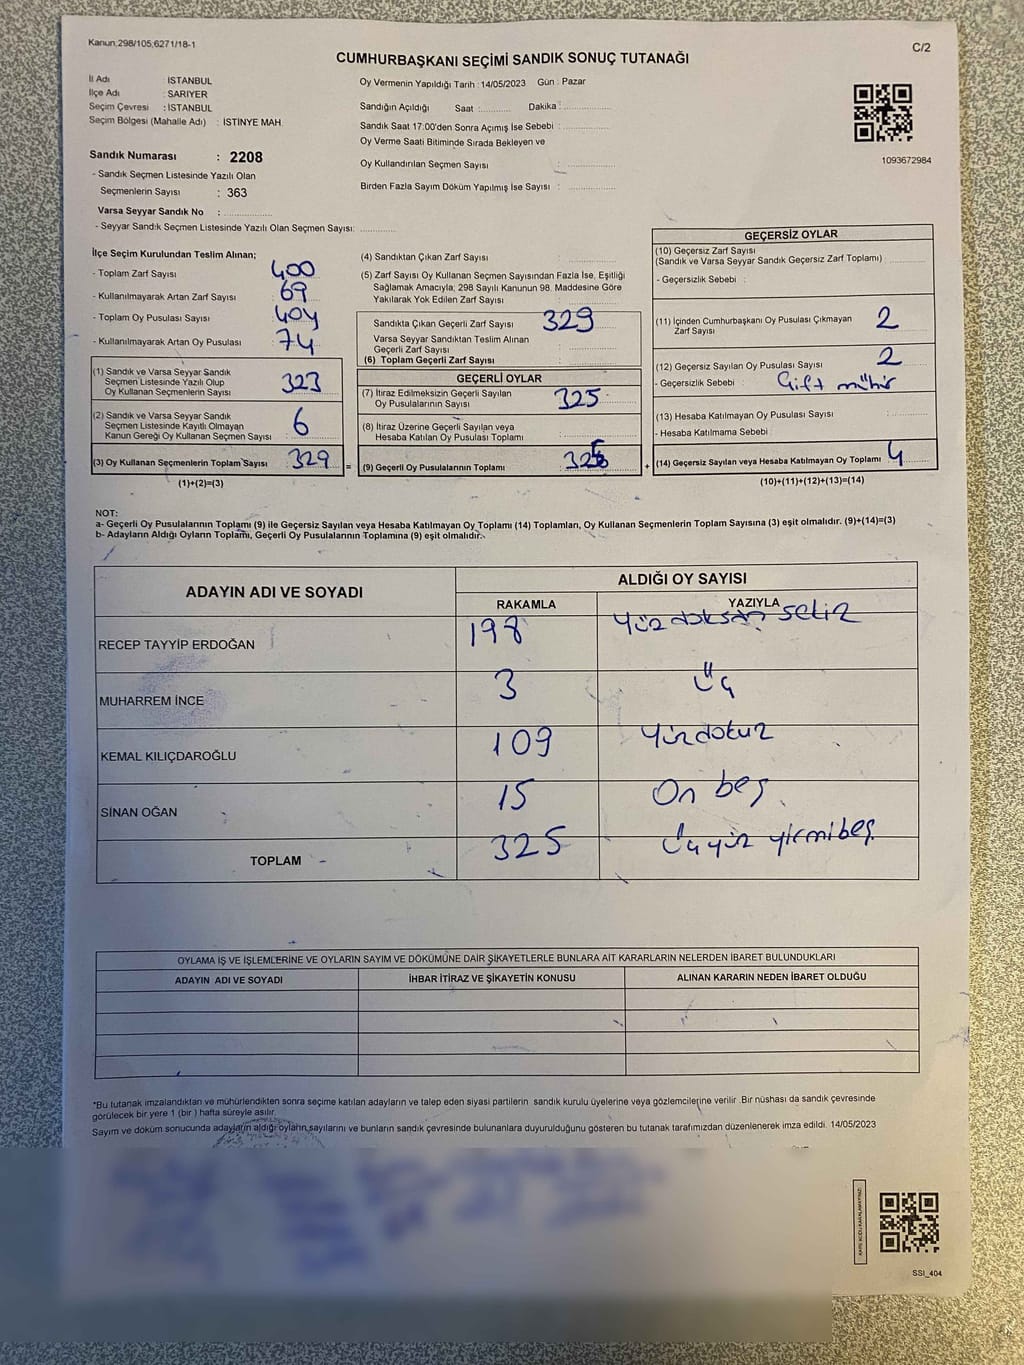 Kanun,298/105,6271/18-1
C/2
CUMHURBAŞKANI SEÇİMİ SANDIK SONUÇ TUTANAĞI
İl Adı : İSTANBUL
İlçe Adı : SARIYER
Seçim Çevresi : İSTANBUL
Seçim Bölgesi (Mahalle Adı) : İSTİNYE MAH.
Sandık Numarası : 2208
- Sandık Seçmen Listesinde Yazılı Olan
Seçmenlerin Sayısı : 363
Varsa Seyyar Sandık No :
- Seyyar Sandık Seçmen Listesinde Yazılı Olan Seçmen Sayısı:
Oy Vermenin Yapıldığı Tarih : 14/05/2023 Gün : Pazar
Sandığın Açıldığı Saat : Dakika :
Sandık Saat 17:00'den Sonra Açımış İse Sebebi :
Oy Verme Saati Bitiminde Sırada Bekleyen ve
Oy Kullandırılan Seçmen Sayısı :
Birden Fazla Sayım Döküm Yapılmış İse Sayısı :
1093672984
İlçe Seçim Kurulundan Teslim Alınan;
- Toplam Zarf Sayısı 400
- Kullanılmayarak Artan Zarf Sayısı 69
- Toplam Oy Pusulası Sayısı 404
- Kullanılmayarak Artan Oy Pusulası 74
(1) Sandık ve Varsa Seyyar Sandık
Seçmen Listesinde Yazılı Olup
Oy Kullanan Seçmenlerin Sayısı 323
(2) Sandık ve Varsa Seyyar Sandık
Seçmen Listesinde Kayıtlı Olmayan
Kanun Gereği Oy Kullanan Seçmen Sayısı 6
(3) Oy Kullanan Seçmenlerin Toplam Sayısı 329 =
(1)+(2)=(3)
(4) Sandıktan Çıkan Zarf Sayısı
(5) Zarf Sayısı Oy Kullanan Seçmen Sayısından Fazla İse, Eşitliği
Sağlamak Amacıyla; 298 Sayılı Kanunun 98. Maddesine Göre
Yakılarak Yok Edilen Zarf Sayısı
Sandıkta Çıkan Geçerli Zarf Sayısı 329
Varsa Seyyar Sandıktan Teslim Alınan
Geçerli Zarf Sayısı
(6) Toplam Geçerli Zarf Sayısı
GEÇERLİ OYLAR
(7) İtiraz Edilmeksizin Geçerli Sayılan
Oy Pusulalarının Sayısı 325
(8) İtiraz Üzerine Geçerli Sayılan veya
Hesaba Katılan Oy Pusulası Toplamı
(9) Geçerli Oy Pusulalarının Toplamı 325 +
GEÇERSİZ OYLAR
(10) Geçersiz Zarf Sayısı
(Sandık ve Varsa Seyyar Sandık Geçersiz Zarf Toplamı)
- Geçersizlik Sebebi :
(11) İçinden Cumhurbaşkanı Oy Pusulası Çıkmayan
Zarf Sayısı 2
(12) Geçersiz Sayılan Oy Pusulası Sayısı 2
- Geçersizlik Sebebi Çift mühür
(13) Hesaba Katılmayan Oy Pusulası Sayısı :
- Hesaba Katılmama Sebebi
(14) Geçersiz Sayılan veya Hesaba Katılmayan Oy Toplamı 4
(10)+(11)+(12)+(13)=(14)
NOT:
a- Geçerli Oy Pusulalarının Toplamı (9) ile Geçersiz Sayılan veya Hesaba Katılmayan Oy Toplamı (14) Toplamları, Oy Kullanan Seçmenlerin Toplam Sayısına (3) eşit olmalıdır. (9)+(14)=(3)
b- Adayların Aldığı Oyların Toplamı, Geçerli Oy Pusulalarının Toplamına (9) eşit olmalıdır.
ADAYIN ADI VE SOYADI ALDIĞI OY SAYISI
RAKAMLA YAZIYLA
RECEP TAYYİP ERDOĞAN 198 Yüz doksan sekiz
MUHARREM İNCE 3 Üç
KEMAL KILIÇDAROĞLU 109 Yüzdokuz
SİNAN OĞAN 15 On beş
TOPLAM 325 Üçyüz yirmibeş
OYLAMA İŞ VE İŞLEMLERİNE VE OYLARIN SAYIM VE DÖKÜMÜNE DAİR ŞİKAYETLERLE BUNLARA AİT KARARLARIN NELERDEN İBARET BULUNDUKLARI
ADAYIN ADI VE SOYADI İHBAR İTİRAZ VE ŞİKAYETİN KONUSU ALINAN KARARIN NEDEN İBARET OLDUĞU
*Bu tutanak imzalandıktan ve mühürlendikten sonra seçime katılan adayların ve talep eden siyasi partilerin sandık kurulu üyelerine veya gözlemcilerine verilir .Bir nüshası da sandık çevresinde
görülecek bir yere 1 (bir ) hafta süreyle asılır.
Sayım ve döküm sonucunda adayların aldığı oyların sayılarını ve bunların sandık çevresinde bulunanlara duyurulduğunu gösteren bu tutanak tarafımızdan düzenlenerek imza edildi. 14/05/2023
KARE KODU KARALAMAYINIZ!
SSI_404